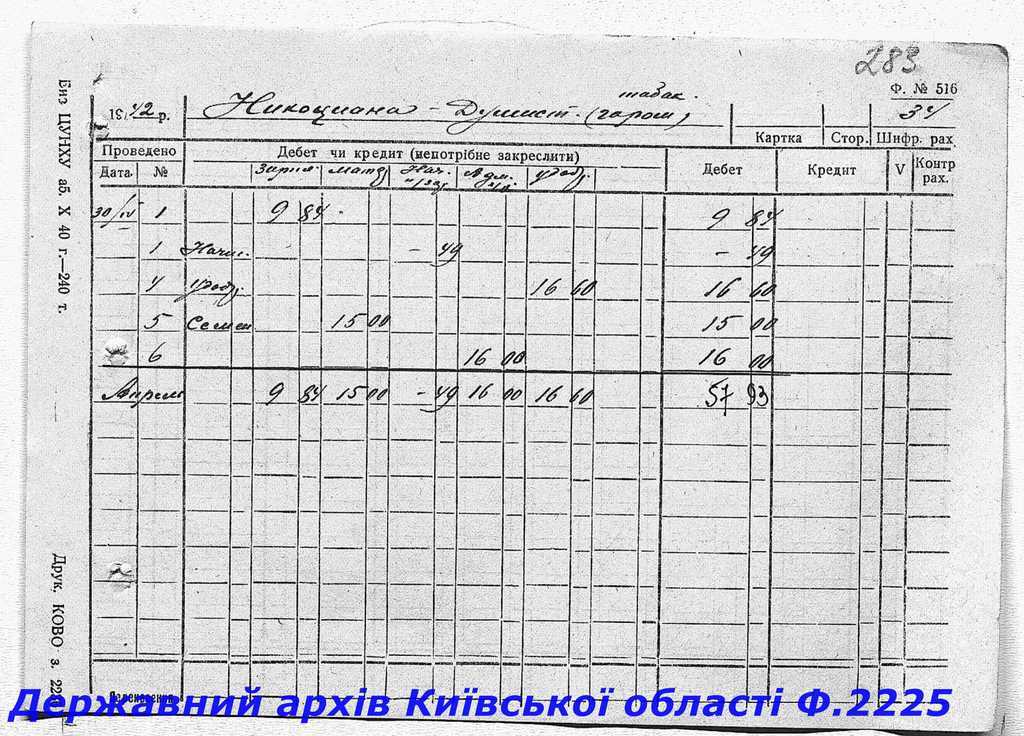 283
Ф. № 516
табак.
1942 р. Никоциана - Душист. 34
Картка Стор. Шифр. рах.
Проведено Дебет чи кредит (непотрібне закреслити) Дебет Кредит V Контр рах.
Дата № Зарпл. Нач. Адм. удобр.
30/IV 1 9 84 9 84
1 Начис. - 49 - 49
4 удобр. 16 60 16 60
5 Семен 15 00 15 00
6 16 00 16 00
Апрель 9 84 15 00 - 49 16 00 16 60 57 93
Виз ЦУНХУ аб. Х 40 г.—240 т.
Друк. КОВО з. 22
Державний архів Київської області Ф.2225